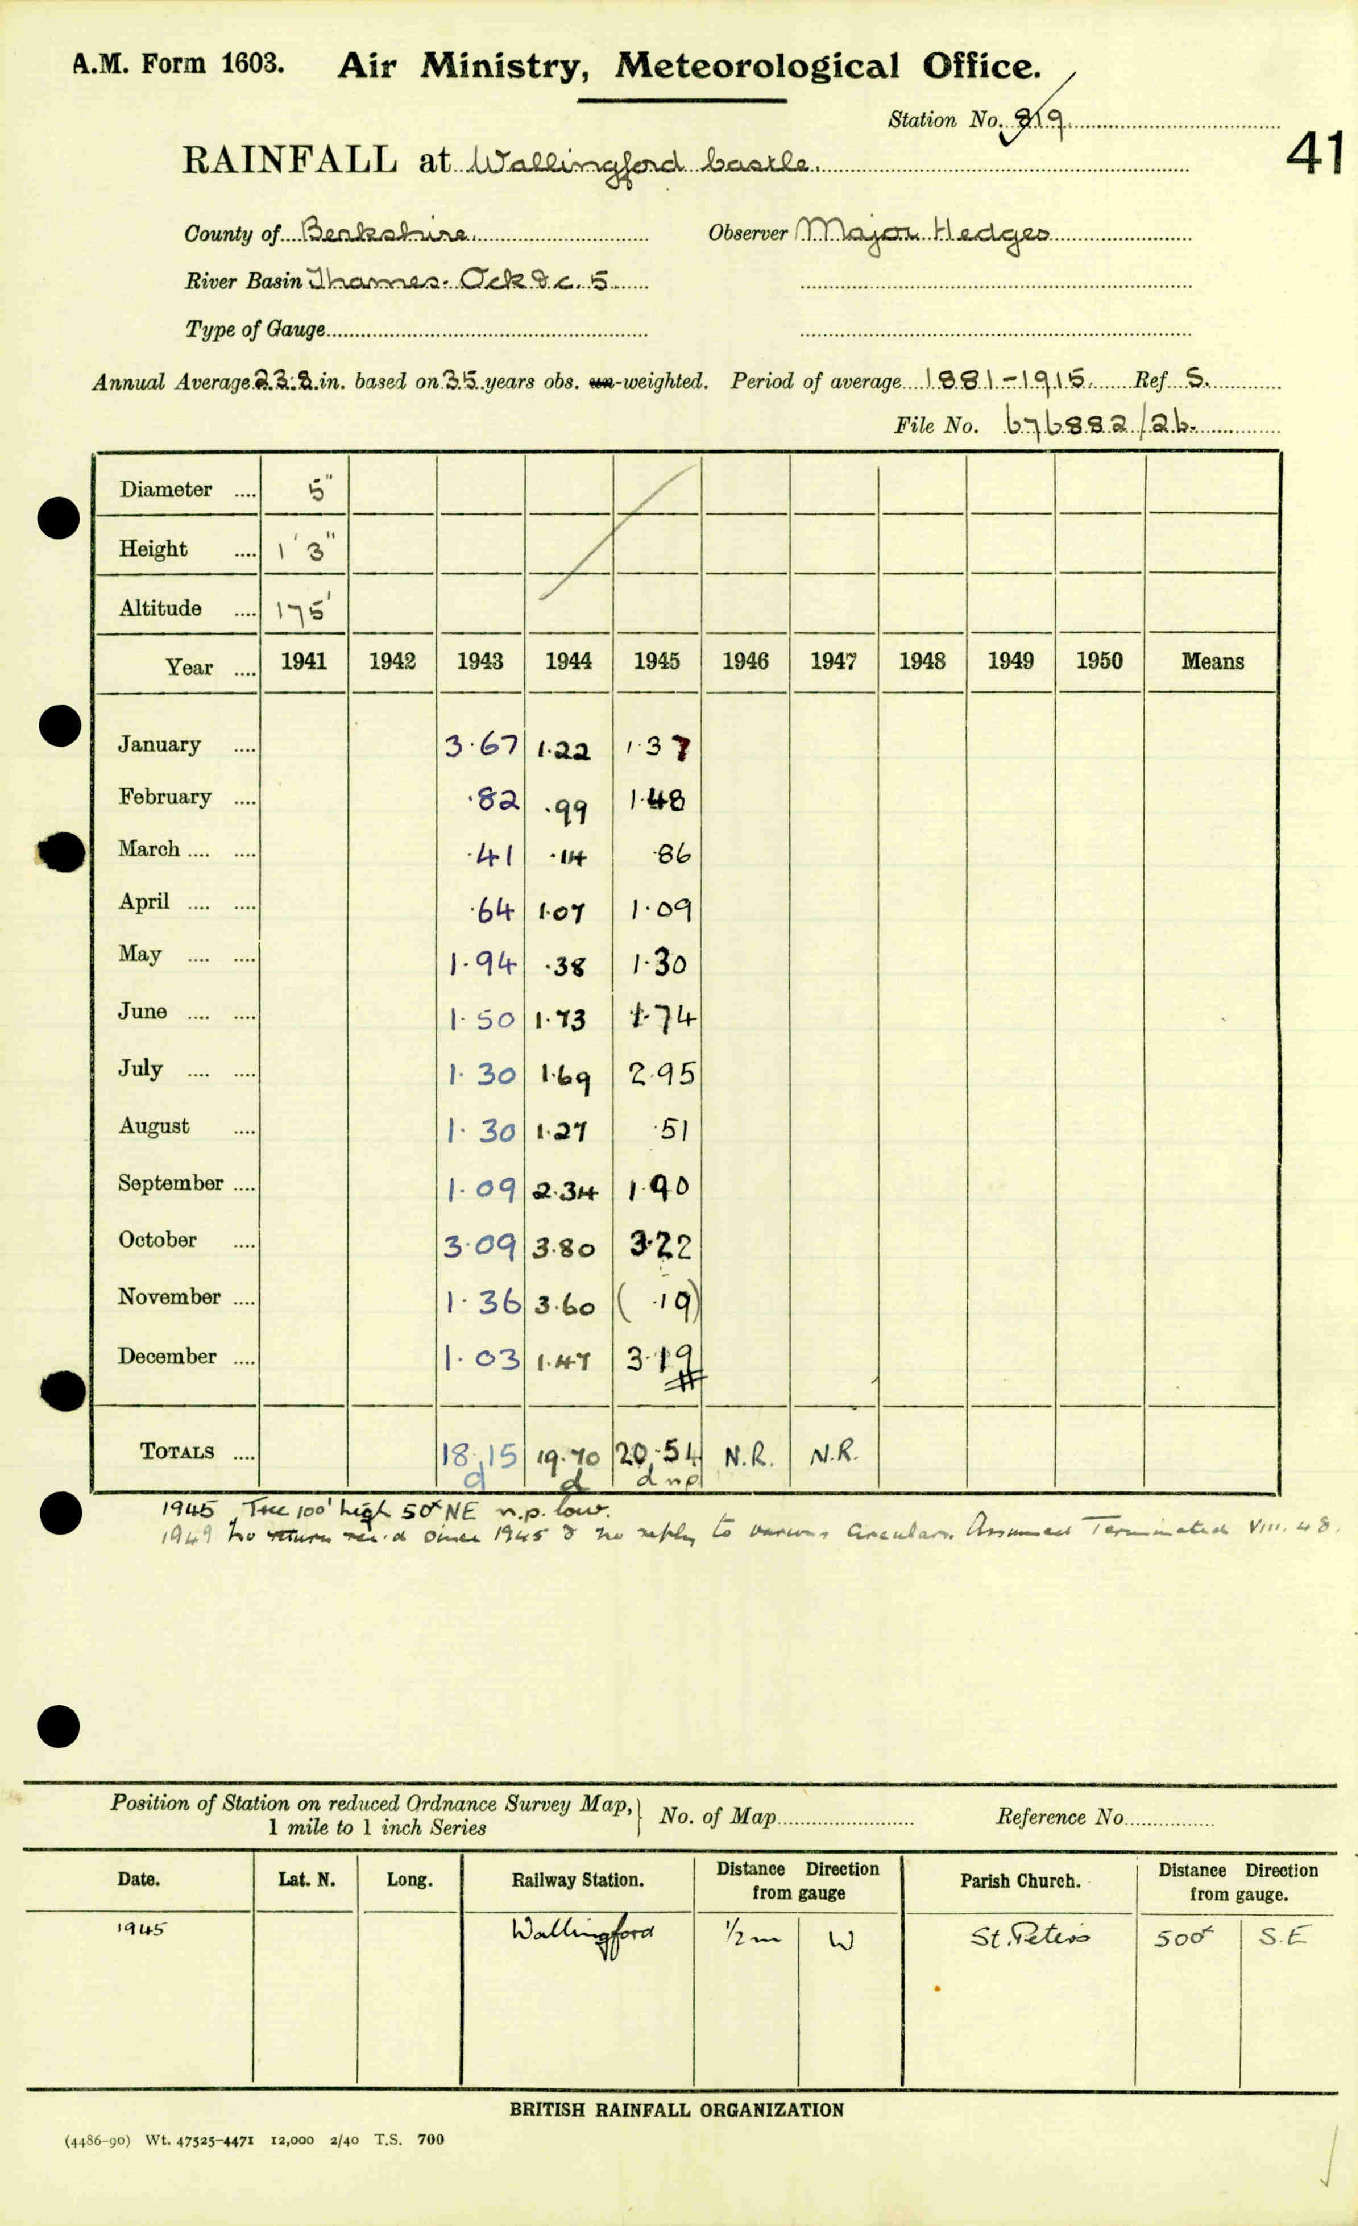 A.M. Form 1603. Air Ministry, Meteorological Office.
Station No. 819
41
RAINFALL at Wallingford Castle.
County of Berkshire. Observer Major Hedges
River Basin Thames - Ock &c. 5
Type of Gauge
Annual Average 23.8 in. based on 35 years obs. un-weighted. Period of average 1881-1915. Ref S.
File No. 676882/26.
Diameter .... 5"
Height .... 1' 3"
Altitude .... 175'
Year .... 1941 1942 1943 1944 1945 1946 1947 1948 1949 1950 Means
January .... 3.67 1.22 1.37
February .... .82 .99 1.48
March .... .... .41 .14 .86
April .... .... .64 1.07 1.09
May .... .... 1.94 .38 1.30
June .... .... 1.50 1.73 1.74
July .... .... 1.30 1.69 2.95
August .... 1.30 1.27 .51
September .... 1.09 2.34 1.90
October .... 3.09 3.80 3.22
November .... 1.36 3.60 ( .19)
December .... 1.03 1.47 3.19
TOTALS .... 18.15 19.70 20.54 N.R. N.R.
d d d np
1945 Tree 100' high 50ft NE n.p. low.
1949 No return rec'd since 1945 & no reply to various Circulars. Assumed Terminated VIII. 48.
Position of Station on reduced Ordnance Survey Map, 1 mile to 1 inch Series } No. of Map Reference No.
Date. Lat. N. Long. Railway Station. Distance Direction from gauge Parish Church. Distance Direction from gauge.
1945 Wallingford 1/2 m W St. Peters 500ft S.E
BRITISH RAINFALL ORGANIZATION
(4486-90) Wt. 47525-4471 12,000 2/40 T.S. 700